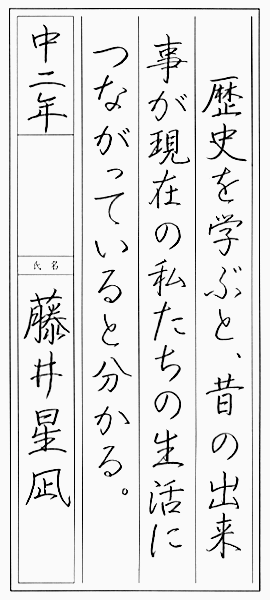 歴史を学ぶと、昔の出来
事が現在の私たちの生活に
つながっていると分かる。
中二年
氏名
藤井星凪